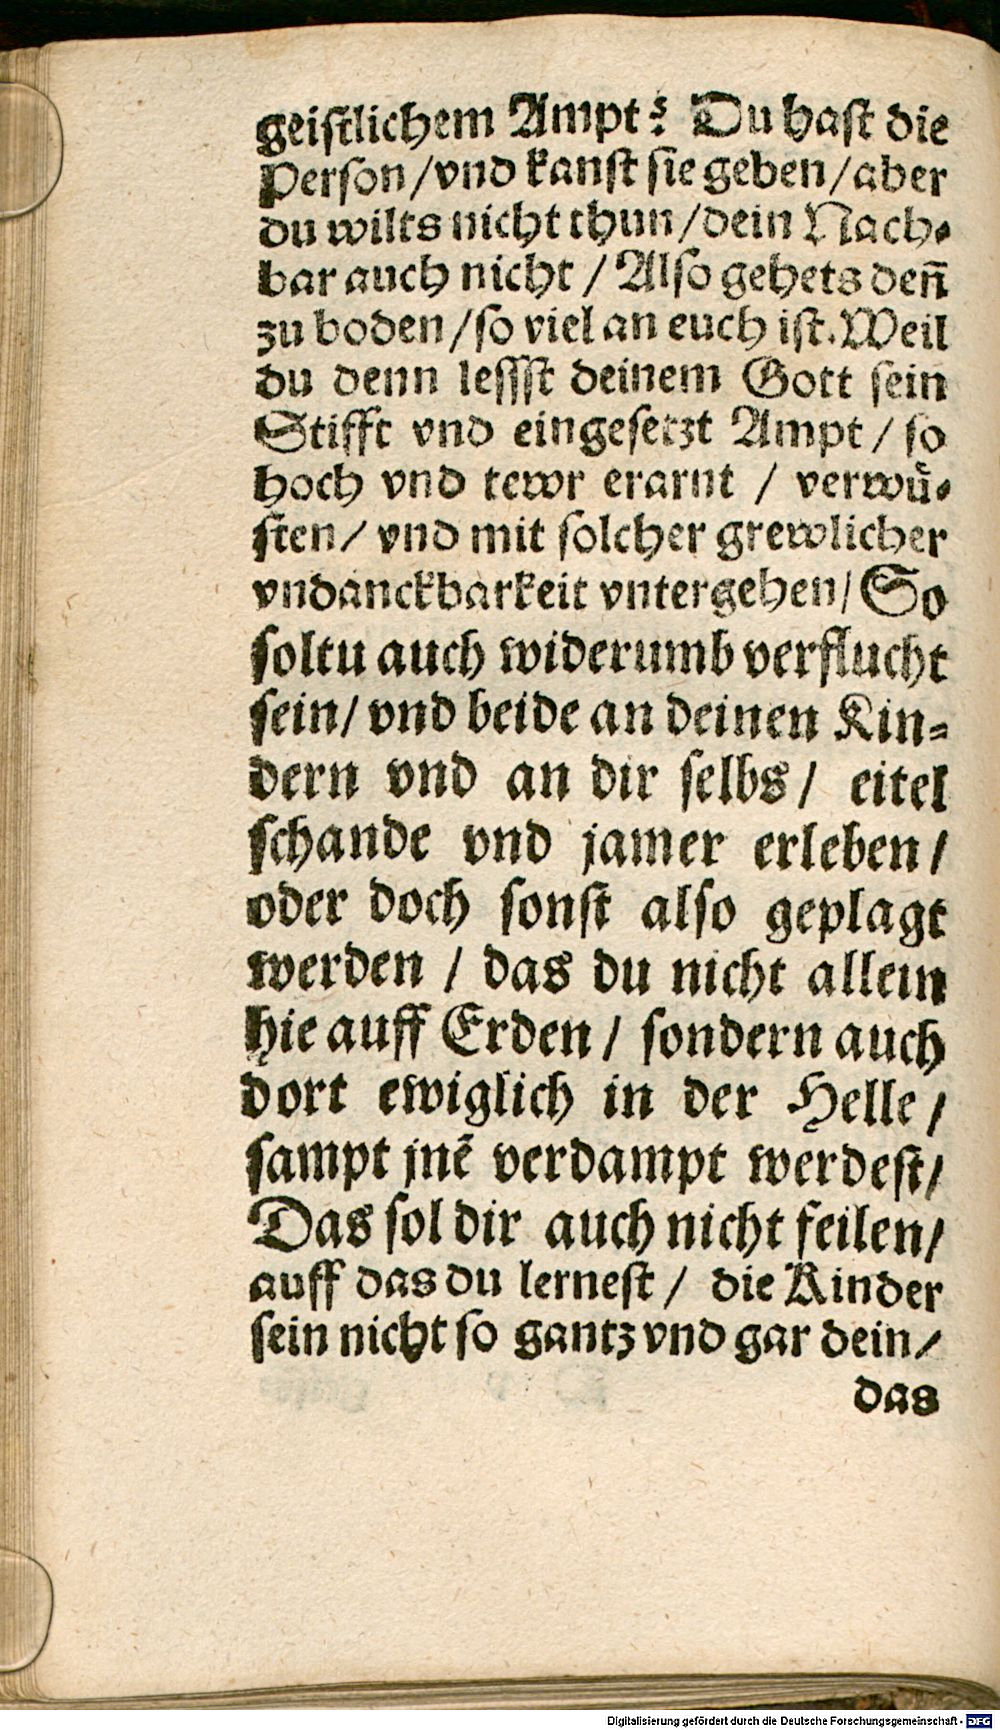 geistlichem Ampt? Du hast die
Person/vnd kanst sie geben/aber
du wilts nicht thun/dein Nach-
bar auch nicht / Also gehets deñ
zu boden/so viel an euch ist. Weil
du denn lessst deinem Gott sein
Stifft vnd eingesetzt Ampt / so
hoch vnd tewr erarnt / verwuͤ-
sten/ vnd mit solcher grewlicher
vndanckbarkeit vntergehen/ So
soltu auch widerumb verflucht
sein/ vnd beide an deinen Kin-
dern vnd an dir selbs/ eitel
schande vnd jamer erleben/
oder doch sonst also geplagt
werden / das du nicht allein
hie auff Erden/ sondern auch
dort ewiglich in der Helle/
sampt jnē verdampt werdest/
Das sol dir auch nicht feilen/
auff das du lernest/ die Kinder
sein nicht so gantz vnd gar dein/
das
Digitalisierung gefördert durch die Deutsche Forschungsgemeinschaft - DFG